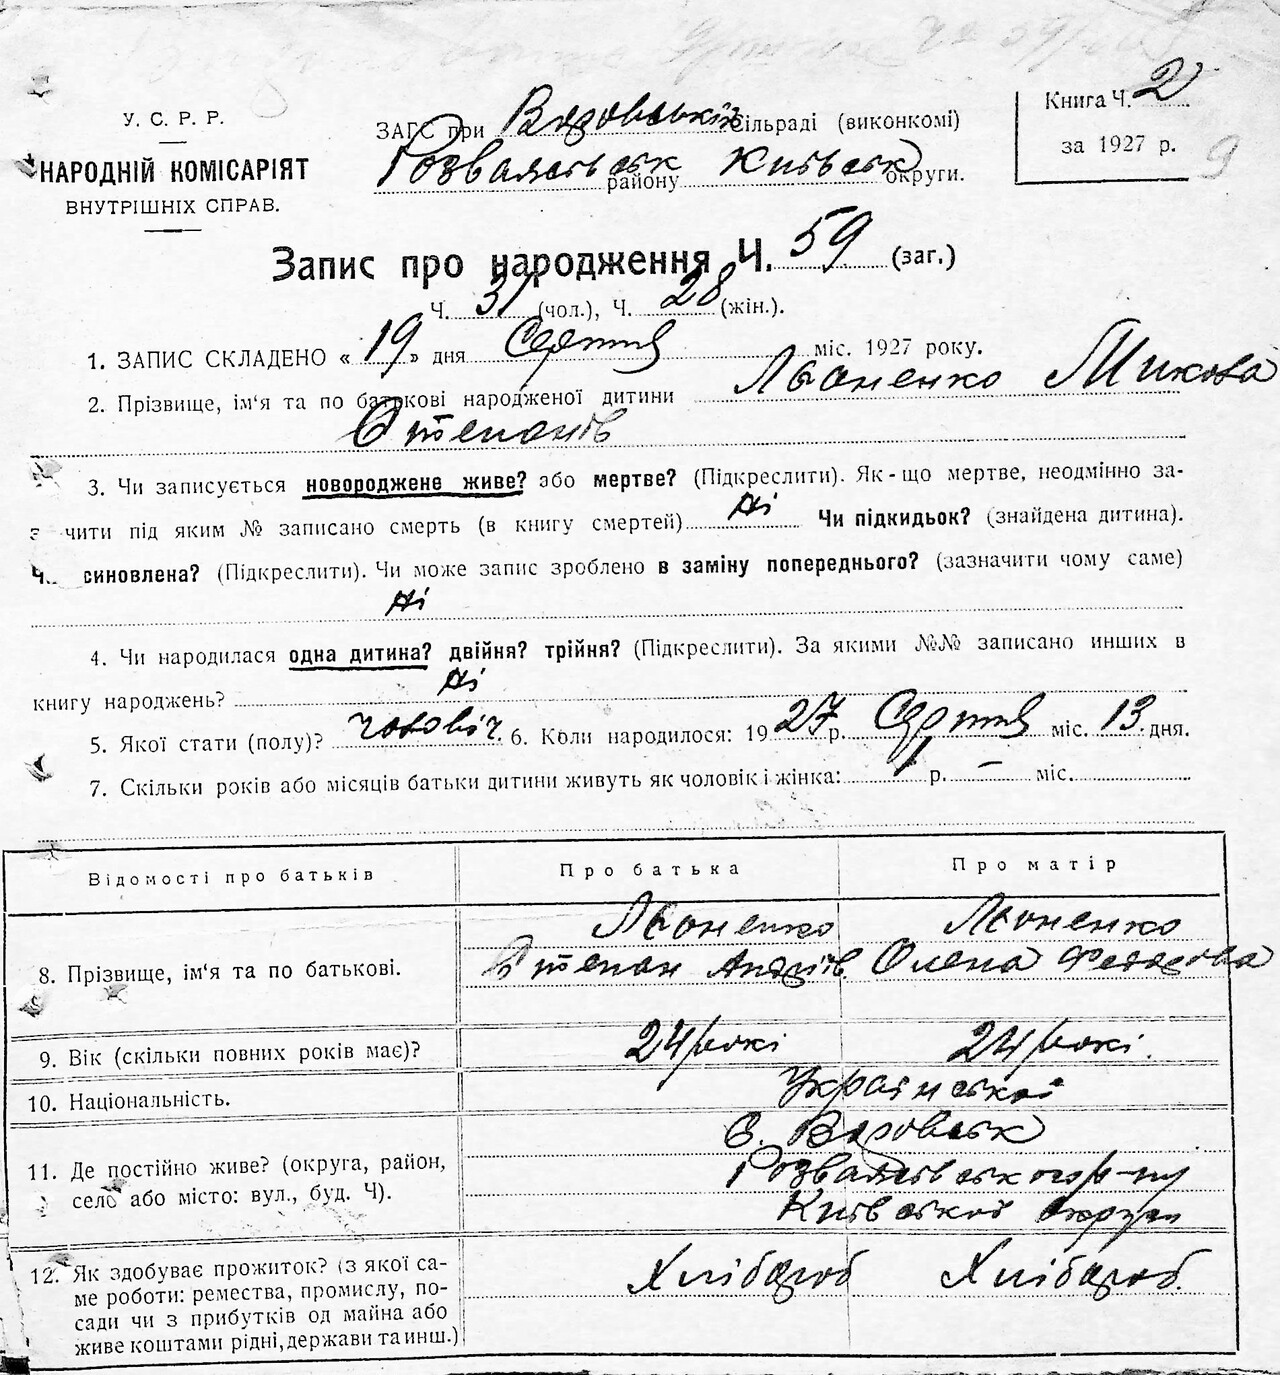 У. С. Р. Р.
НАРОДНІЙ КОМІСАРІЯТ
ВНУТРІШНІХ СПРАВ.
ЗАГС при сільраді (виконкомі)
району Київськ округи.
Книга Ч. 2
за 1927 р.
9
Запис про народження Ч. 59 (заг.)
Ч. 31 (чол.), Ч. 28 (жін.).
1. ЗАПИС СКЛАДЕНО « 19 » дня Серпня міс. 1927 року.
2. Прізвище, ім'я та по батькові народженої дитини Льоненко Микола
Степанів
3. Чи записується новороджене живе? або мертве? (Підкреслити). Як-що мертве, неодмінно за-
чити під яким № записано смерть (в книгу смертей) Ні Чи підкидьок? (знайдена дитина).
Ч синовлена? (Підкреслити). Чи може запис зроблено в заміну попереднього? (зазначити чому саме)
Ні
4. Чи народилася одна дитина? двійня? трійня? (Підкреслити). За якими №№ записано инших в
книгу народжень? Ні
5. Якої стати (полу)? чоловіч. 6. Коли народилося: 1927 р. Серпня міс. 13 дня.
7. Скільки років або місяців батьки дитини живуть як чоловік і жінка: 1 р. – міс.
Відомості про батьків
Про батька
Про матір
8. Прізвище, ім'я та по батькові.
Льоненко
Степан Андріїв
Льоненко
Олена Федорова
9. Вік (скільки повних років має)?
24 рокі
24 рокі.
10. Національність.
Української
11. Де постійно живе? (округа, район,
село або місто: вул., буд. Ч).
с.
р-ну
Київської округи
12. Як здобуває прожиток? (з якої са-
ме роботи: ремества, промислу, по-
сади чи з прибутків од майна або
живе коштами рідні, держави та инш.)
Хлібороб
Хлібороб.